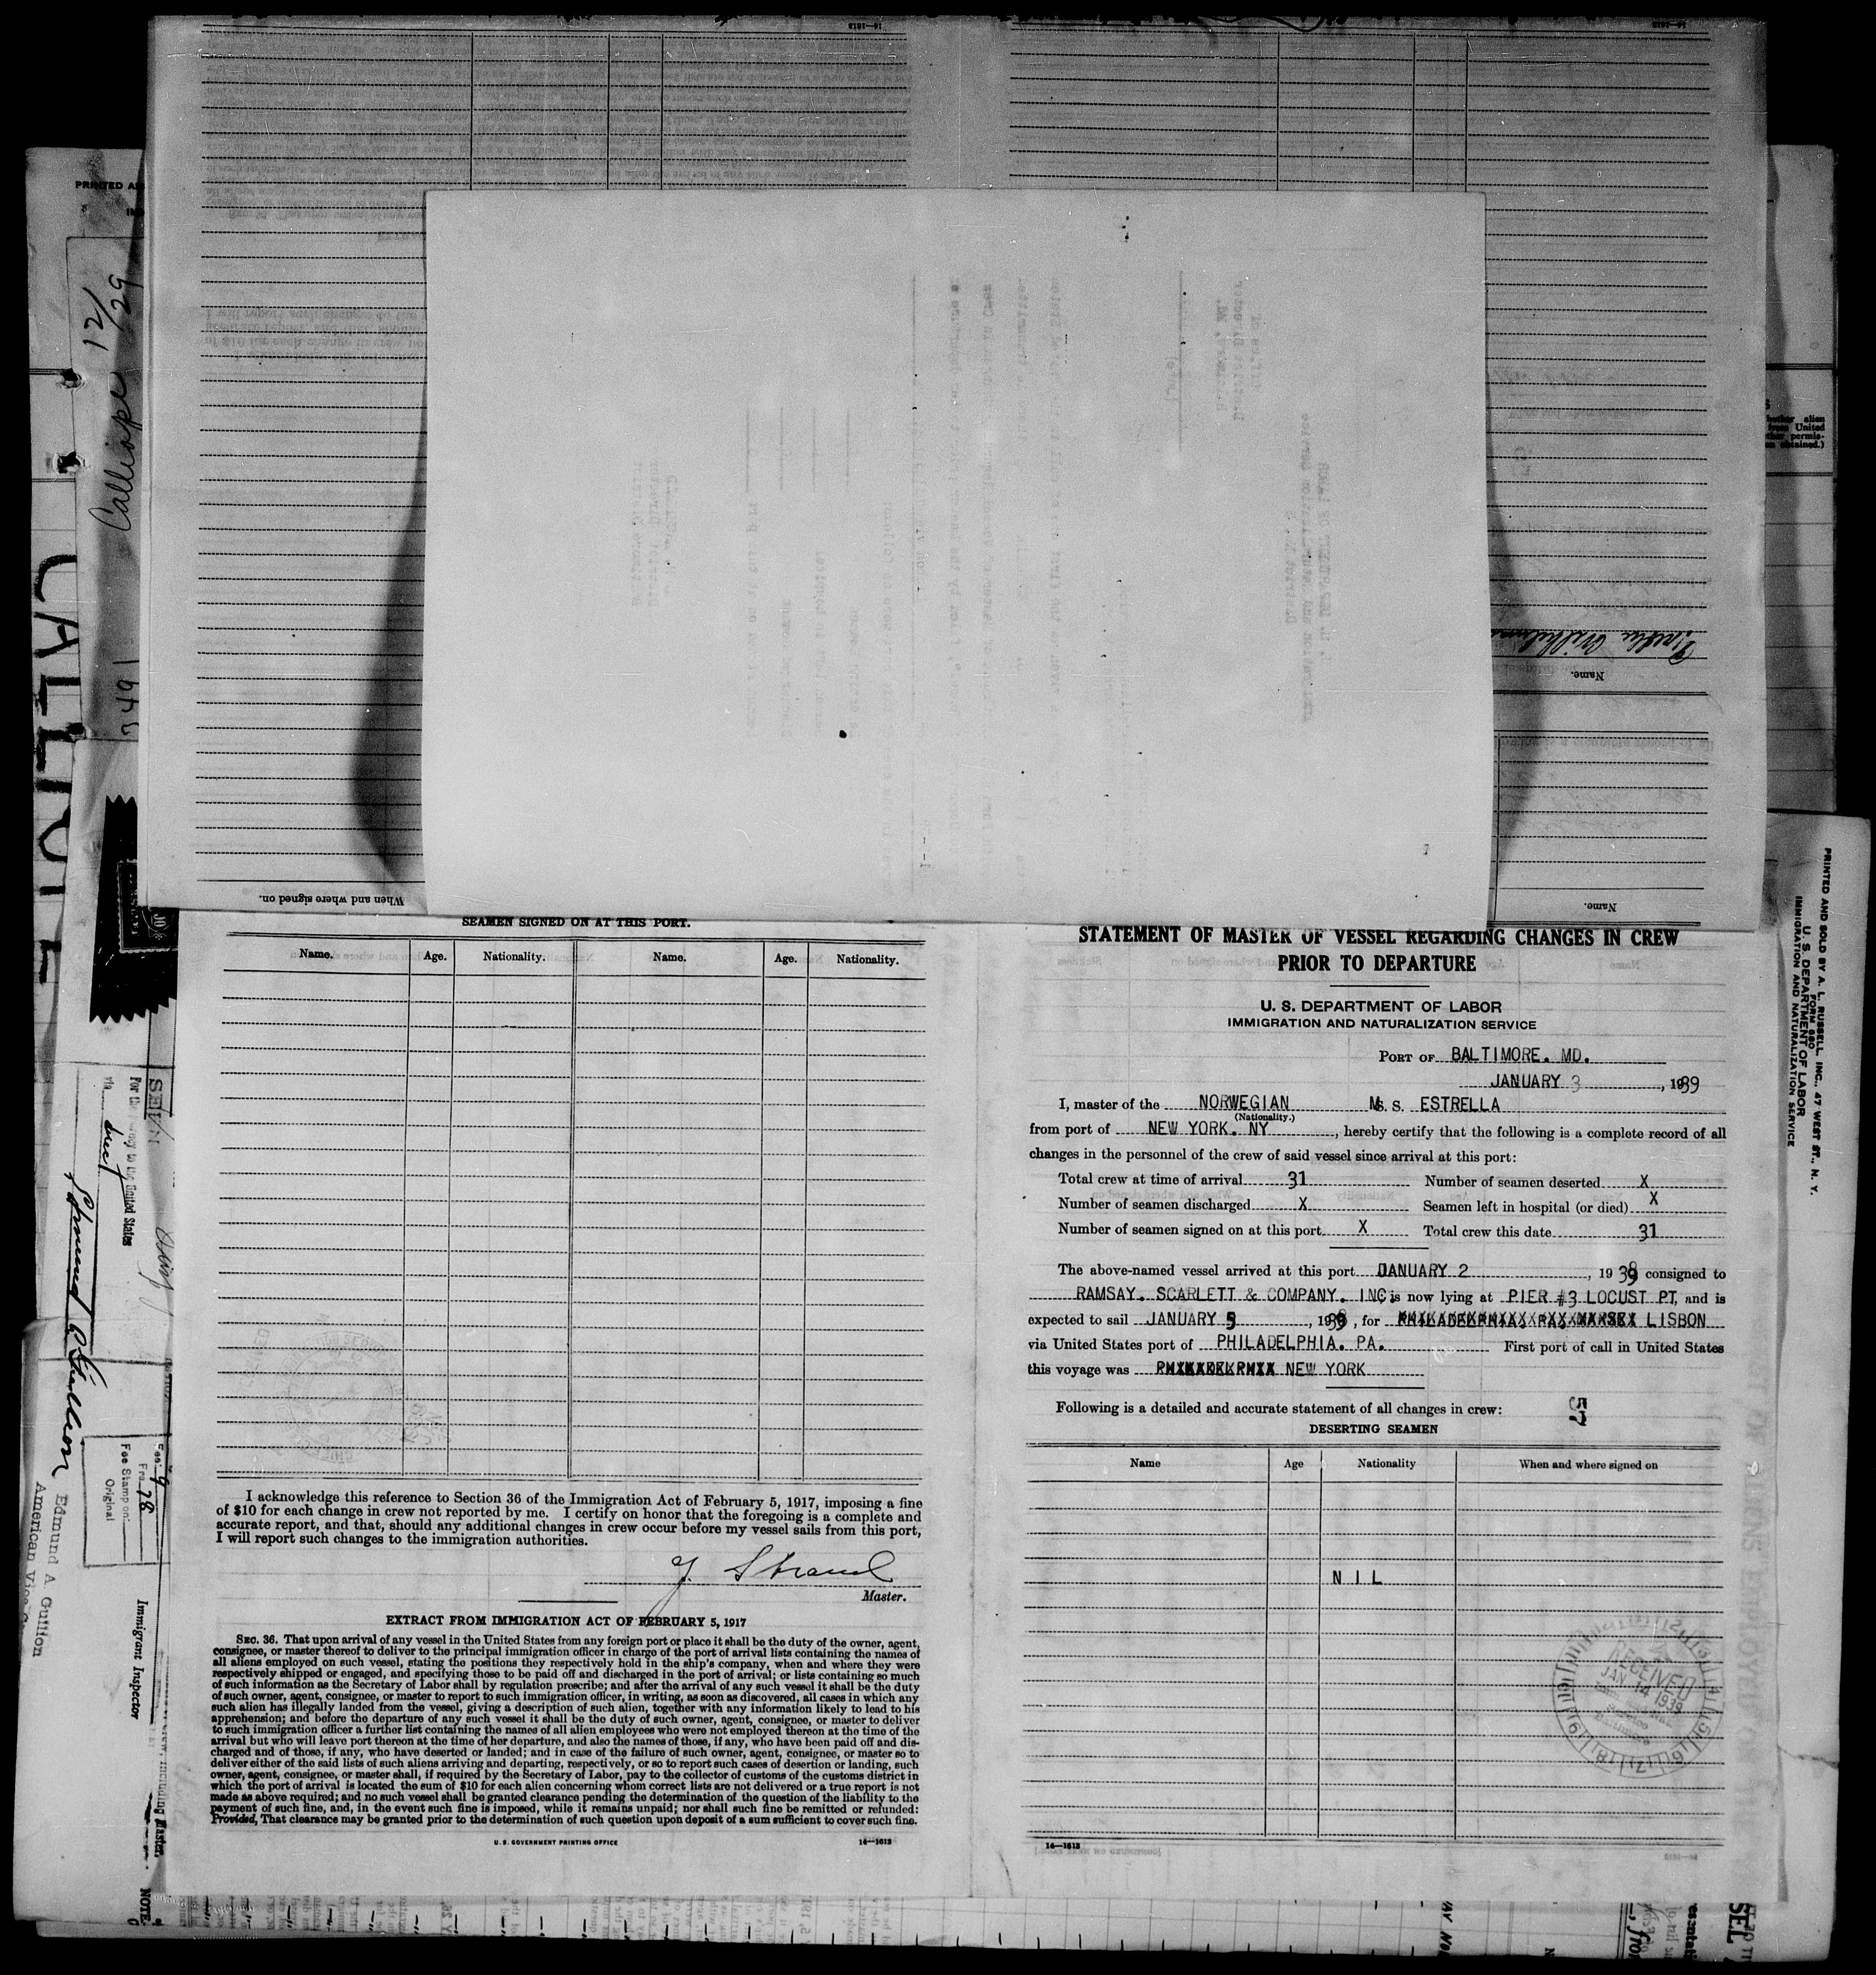 SEAMEN SIGNED ON AT THIS PORT.
Name. Age. Nationality. Name. Age. Nationality.
I acknowledge this reference to Section 36 of the Immigration Act of February 5, 1917, imposing a fine
of $10 for each change in crew not reported by me. I certify on honor that the foregoing is a complete and
accurate report, and that, should any additional changes in crew occur before my vessel sails from this port,
I will report such changes to the immigration authorities.
Master.
EXTRACT FROM IMMIGRATION ACT OF FEBRUARY 5, 1917
SEC. 36. That upon arrival of any vessel in the United States from any foreign port or place it shall be the duty of the owner, agent,
consignee, or master thereof to deliver to the principal immigration officer in charge of the port of arrival lists containing the names of
all aliens employed on such vessel, stating the positions they respectively hold in the ship's company, when and where they were
respectively shipped or engaged, and specifying those to be paid off and discharged in the port of arrival; or lists containing so much
of such information as the Secretary of Labor shall by regulation prescribe; and after the arrival of any such vessel it shall be the duty
of such owner, agent, consignee, or master to report to such immigration officer, in writing, as soon as discovered, all cases in which any
such alien has illegally landed from the vessel, giving a description of such alien, together with any information likely to lead to his
apprehension; and before the departure of any such vessel it shall be the duty of such owner, agent, consignee, or master to deliver
to such immigration officer a further list containing the names of all alien employees who were not employed thereon at the time of the
arrival but who will leave port thereon at the time of her departure, and also the names of those, if any, who have been paid off and dis-
charged and of those, if any, who have deserted or landed; and in case of the failure of such owner, agent, consignee, or master so to
deliver either of the said lists of such aliens arriving and departing, respectively, or so to report such cases of desertion or landing, such
owner, agent, consignee, or master shall, if required by the Secretary of Labor, pay to the collector of customs of the customs district in
which the port of arrival is located the sum of $10 for each alien concerning whom correct lists are not delivered or a true report is not
made as above required; and no such vessel shall be granted clearance pending the determination of the question of the liability to the
payment of such fine, and, in the event such fine is imposed, while it remains unpaid; nor shall such fine be remitted or refunded:
Provided, That clearance may be granted prior to the determination of such question upon deposit of a sum sufficient to cover such fine.
U. S. GOVERNMENT PRINTING OFFICE 14—1613
STATEMENT OF MASTER OF VESSEL REGARDING CHANGES IN CREW
PRIOR TO DEPARTURE
U. S. DEPARTMENT OF LABOR
IMMIGRATION AND NATURALIZATION SERVICE
PORT OF BALTIMORE. MD.
JANUARY 3, 1939
I, master of the NORWEGIAN M.S. ESTRELLA
(Nationality.)
from port of NEW YORK. NY, hereby certify that the following is a complete record of all
changes in the personnel of the crew of said vessel since arrival at this port:
Total crew at time of arrival 31 Number of seamen deserted X
Number of seamen discharged X Seamen left in hospital (or died) X
Number of seamen signed on at this port X Total crew this date 31
The above-named vessel arrived at this port JANUARY 2, 1939 consigned to
RAMSAY. SCARLETT & COMPANY. INC, is now lying at PIER #3 LOCUST PT, and is
expected to sail JANUARY 5, 1939, for LISBON
via United States port of PHILADELPHIA. PA. First port of call in United States
this voyage was NEW YORK
Following is a detailed and accurate statement of all changes in crew:
57
DESERTING SEAMEN
Name Age Nationality When and where signed on
NIL
RECEIVED
JAN 14 1939
14—1613
Calliope 12/29
3491
CALLIOPE
For the to the United States
via direct
Edmund A. Gullion
American
Fee Stamp on
Original
Immigrant Inspector
NOTE
PRINTED AND SOLD BY A. L. RUSSELL, INC., 47 WEST ST., N. Y.
FORM 680
U. S. DEPARTMENT OF LABOR
IMMIGRATION AND NATURALIZATION SERVICE
When and where signed on.
Name.
Name.